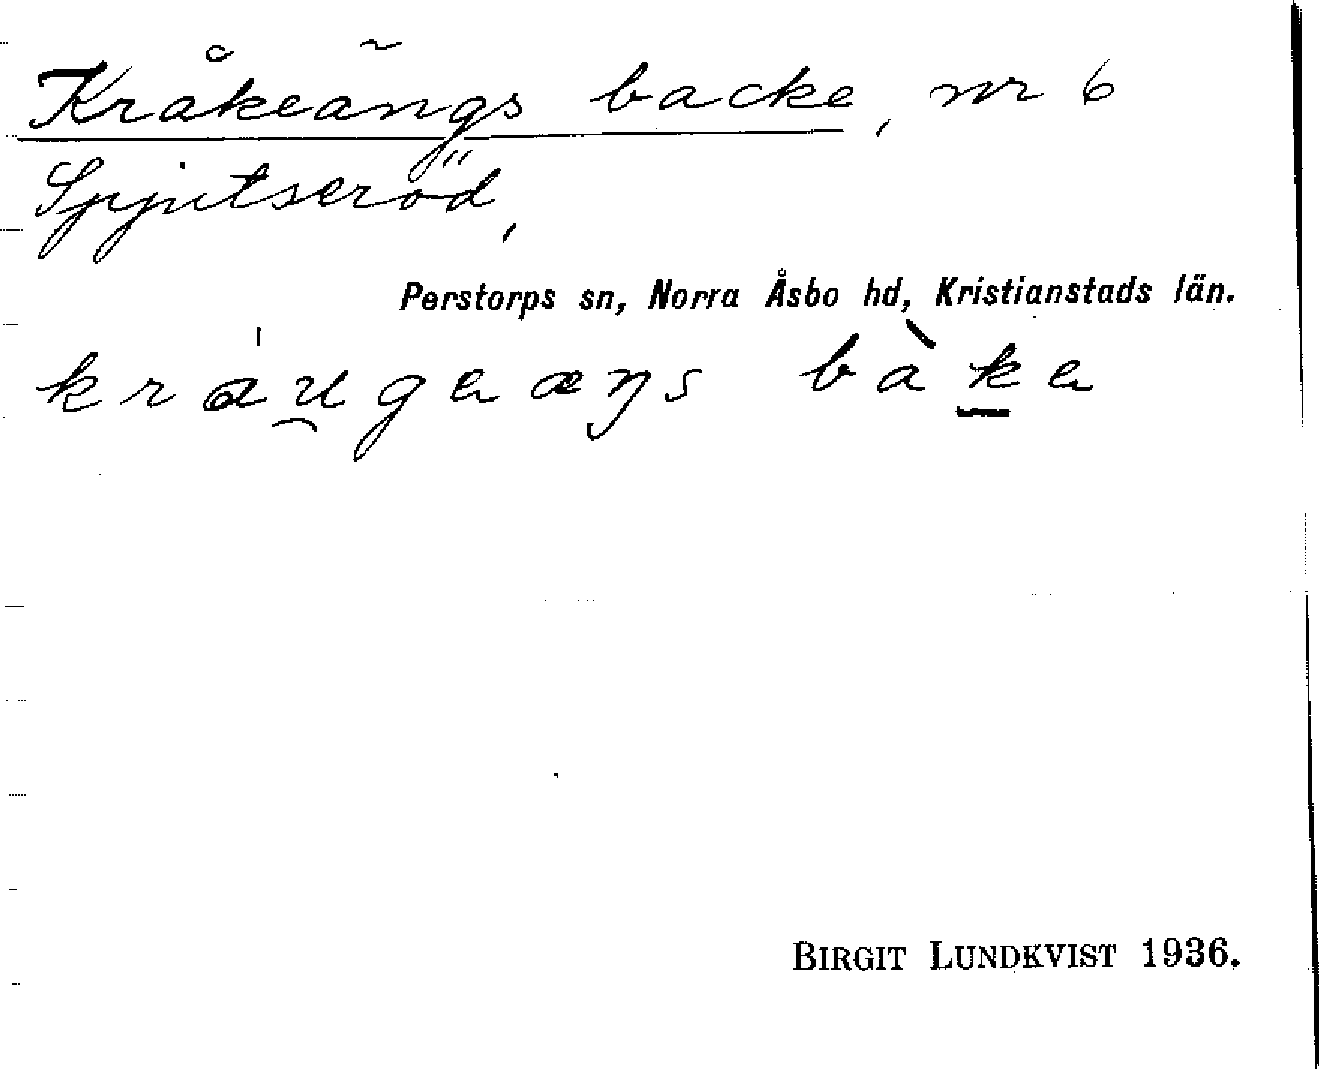 Kråkeängs backe, nr 6
Spjutseröd,
Perstorps sn, Norra Åsbo hd, Kristianstads län.
kráu̯gəæŋs bàk̲ə
BIRGIT LUNDKVIST 1936.